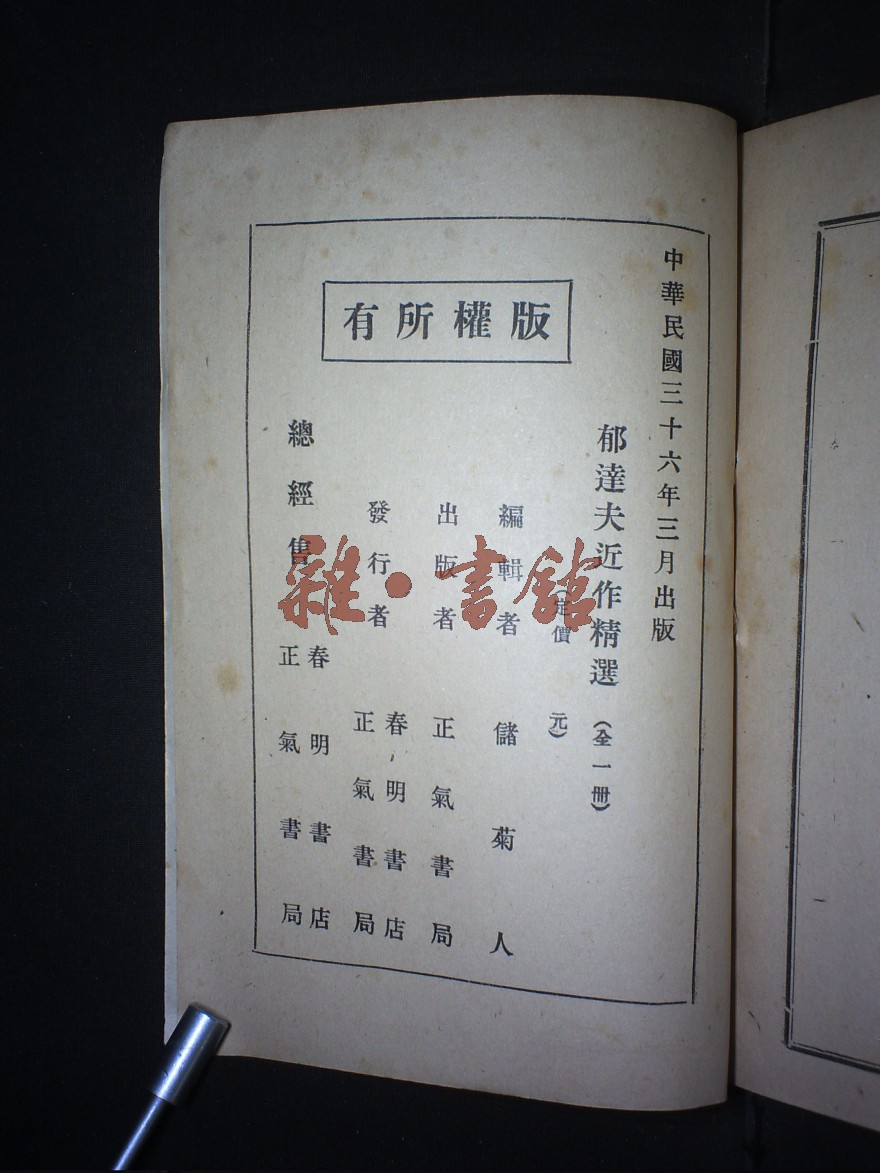 中華民國三十六年三月出版
版權所有
郁達夫近作精選（全一册）
（定價　元）
編輯者　儲菊人
出版者　正氣書局
發行者　春明書店
正氣書局
總經售　春明書店
正氣書局
雜·書館